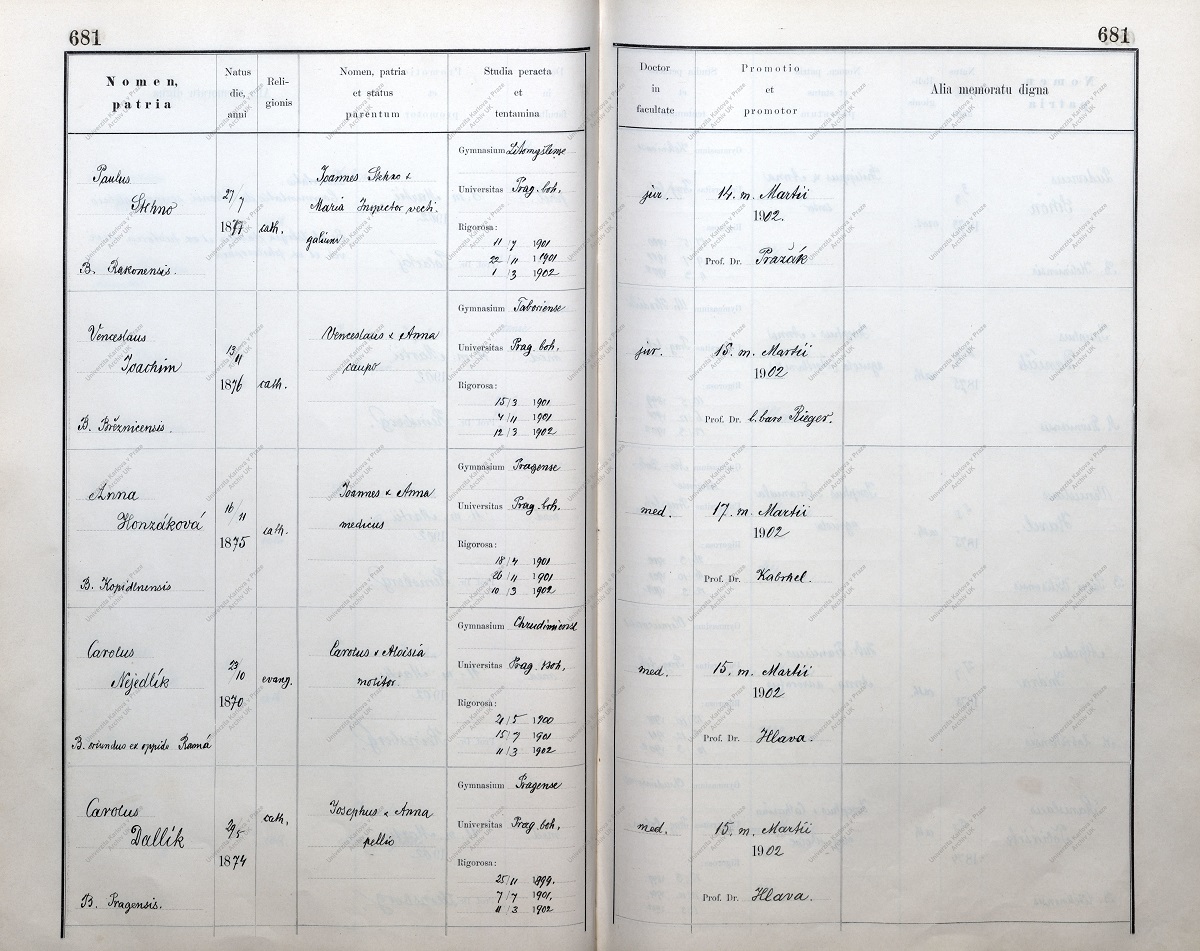 681
681
Nomen,
patria
Natus
die,
anni
Reli-
gionis
Nomen, patria
et status
parentum
Studia peracta
et
tentamina
Doctor
in
facultate
Promotio
et
promotor
Alia memoratu digna
Paulus
Stehno
B. Rakonensis.
27/7
1877
cath.
Joannes Stehno &
Maria Inspector vecti-
galium
Gymnasium Litomyšlense
Universitas Prag. boh.
Rigorosa:
11/7 1901
22/11 1901
1/3 1902
jur.
14. m. Martii
1902.
Prof. Dr. Pražák
Venceslaus
Joachim
B. Březnicensis.
13/11
1876
cath.
Venceslaus & Anna
caupo
Gymnasium Taboriense
Universitas Prag. boh.
Rigorosa:
15/3 1901
4/11 1901
12/3 1902
jur.
15. m. Martii
1902
Prof. Dr. l. baro Rieger.
Anna
Honzáková
B. Kopidlnensis
16/11
1875
cath.
Joannes & Anna
medicus
Gymnasium Pragense
Universitas Prag. boh.
Rigorosa:
18/4 1901
26/11 1901
10/3 1902
med.
17. m. Martii
1902
Prof. Dr. Kabrhel.
Carolus
Nejedlík
B. oriundus ex oppido Ramá
23/10
1870
evang.
Carolus & Aloisia
molitor.
Gymnasium Chrudimiense
Universitas Prag. boh.
Rigorosa:
21/5 1900
15/7 1901
11/3 1902
med.
15. m. Martii
1902
Prof. Dr. Hlava.
Carolus
Dallík
B. Pragensis.
29/5
1874
cath.
Josephus & Anna
pellio
Gymnasium Pragense
Universitas Prag. boh.
Rigorosa:
25/11 1899.
7/7 1901.
11/3 1902
med.
15. m. Martii
1902
Prof. Dr. Hlava.